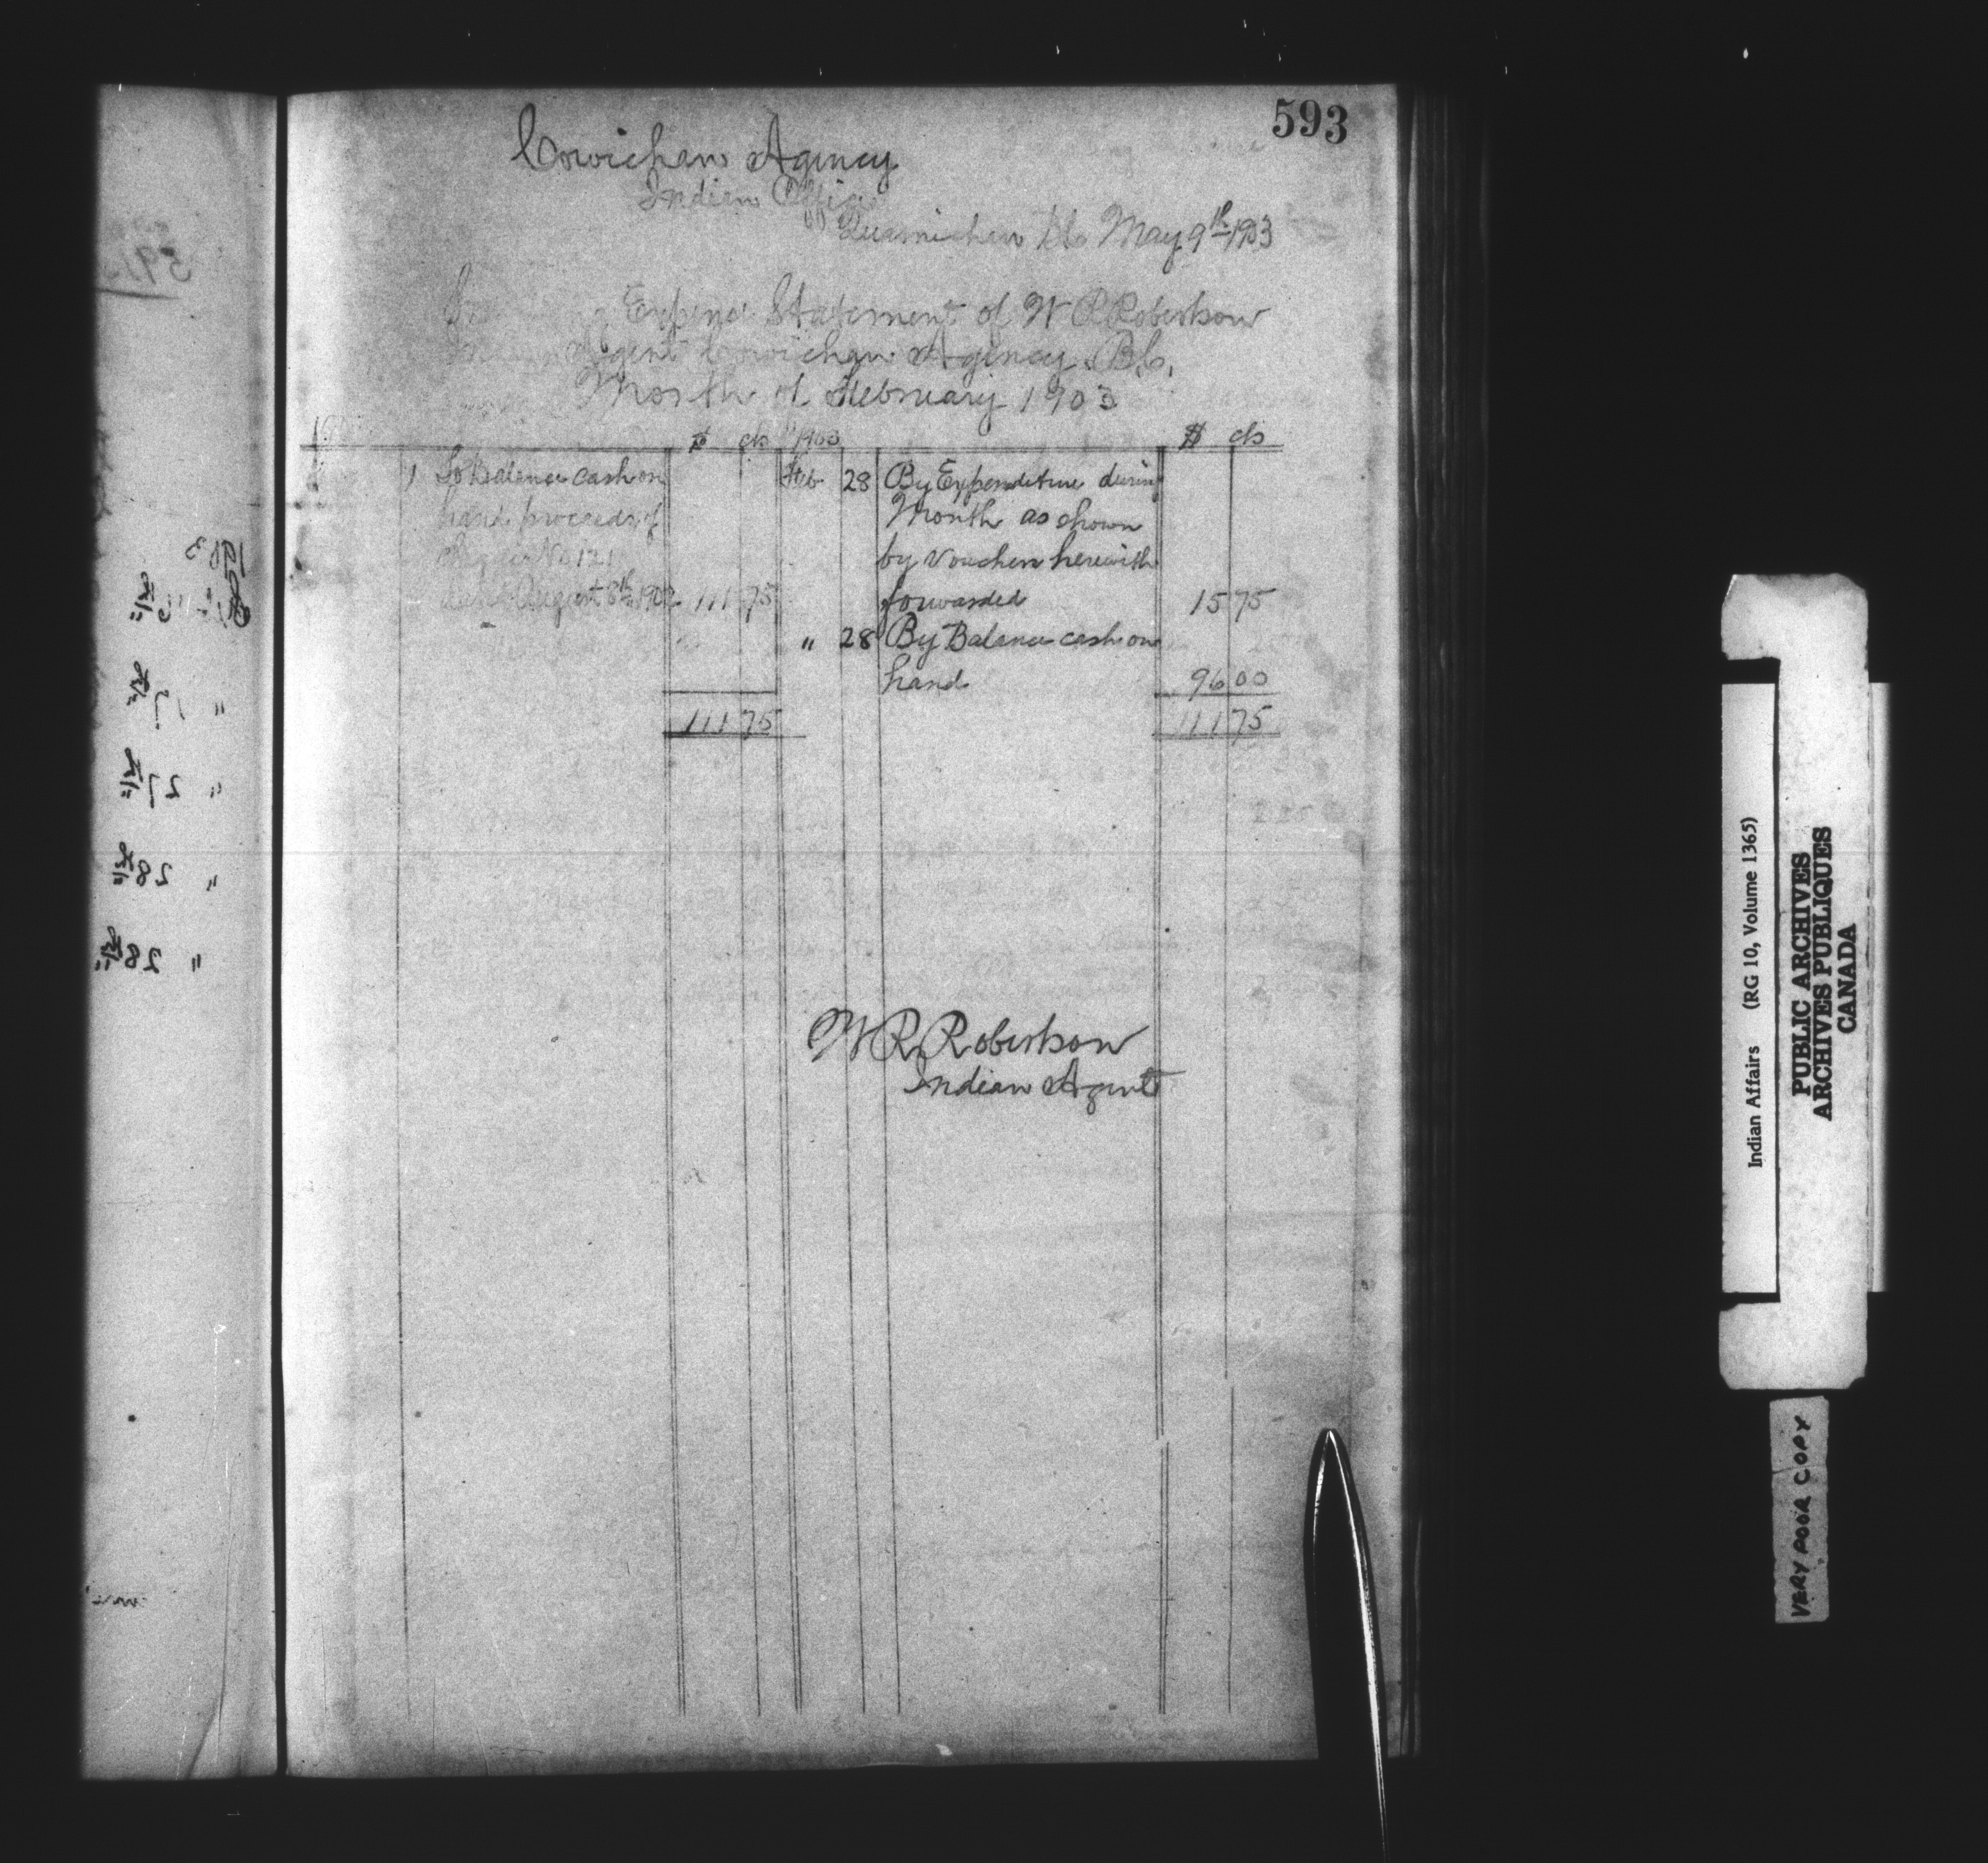 593
Cowichan Agency
Indian Office
Quamichan BC May 9th 1903
Expend Statement of W R Robertson
Agent Cowichan Agency B.C.
Month of February 1903
$ cts 1903 $ cts
1 To Balance cash on
hand proceeds of
Cheque No 121
dated August 8th 1902 111 75
111 75
Feb 28 By Expenditure during
Month as shown
by vouchers herewith
forwarded 15 75
" 28 By Balance cash on
hand 96 00
111 75
W R Robertson
Indian Agent
Indian Affairs (RG 10, Volume 1365)
PUBLIC ARCHIVES
ARCHIVES PUBLIQUES
CANADA
VERY POOR COPY